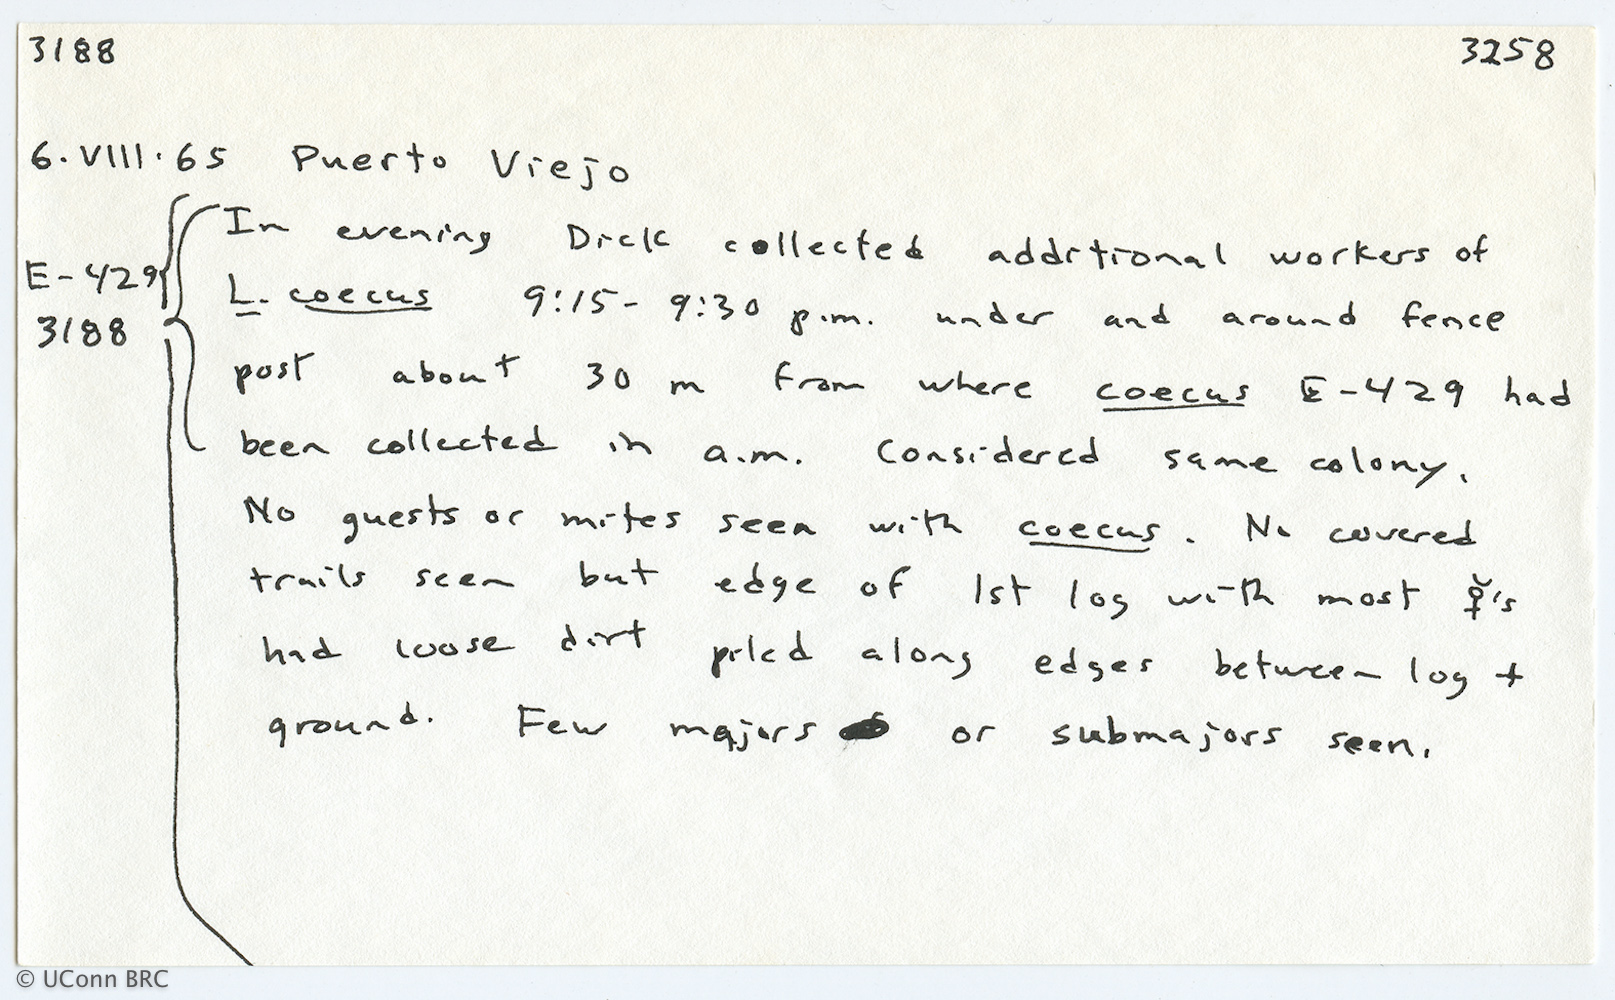 3188 3258
6.VIII.65 Puerto Viejo
In evening Dick collected additional workers of
E-429 L. coecus 9:15-9:30 p.m. under and around fence
3188
post about 30 m from where coecus E-429 had
been collected in a.m. Considered same colony.
No guests or mites seen with coecus. No covered
trails seen but edge of 1st log with most ☿'s
had loose dirt piled along edges between log +
ground. Few majors or submajors seen.
© UConn BRC